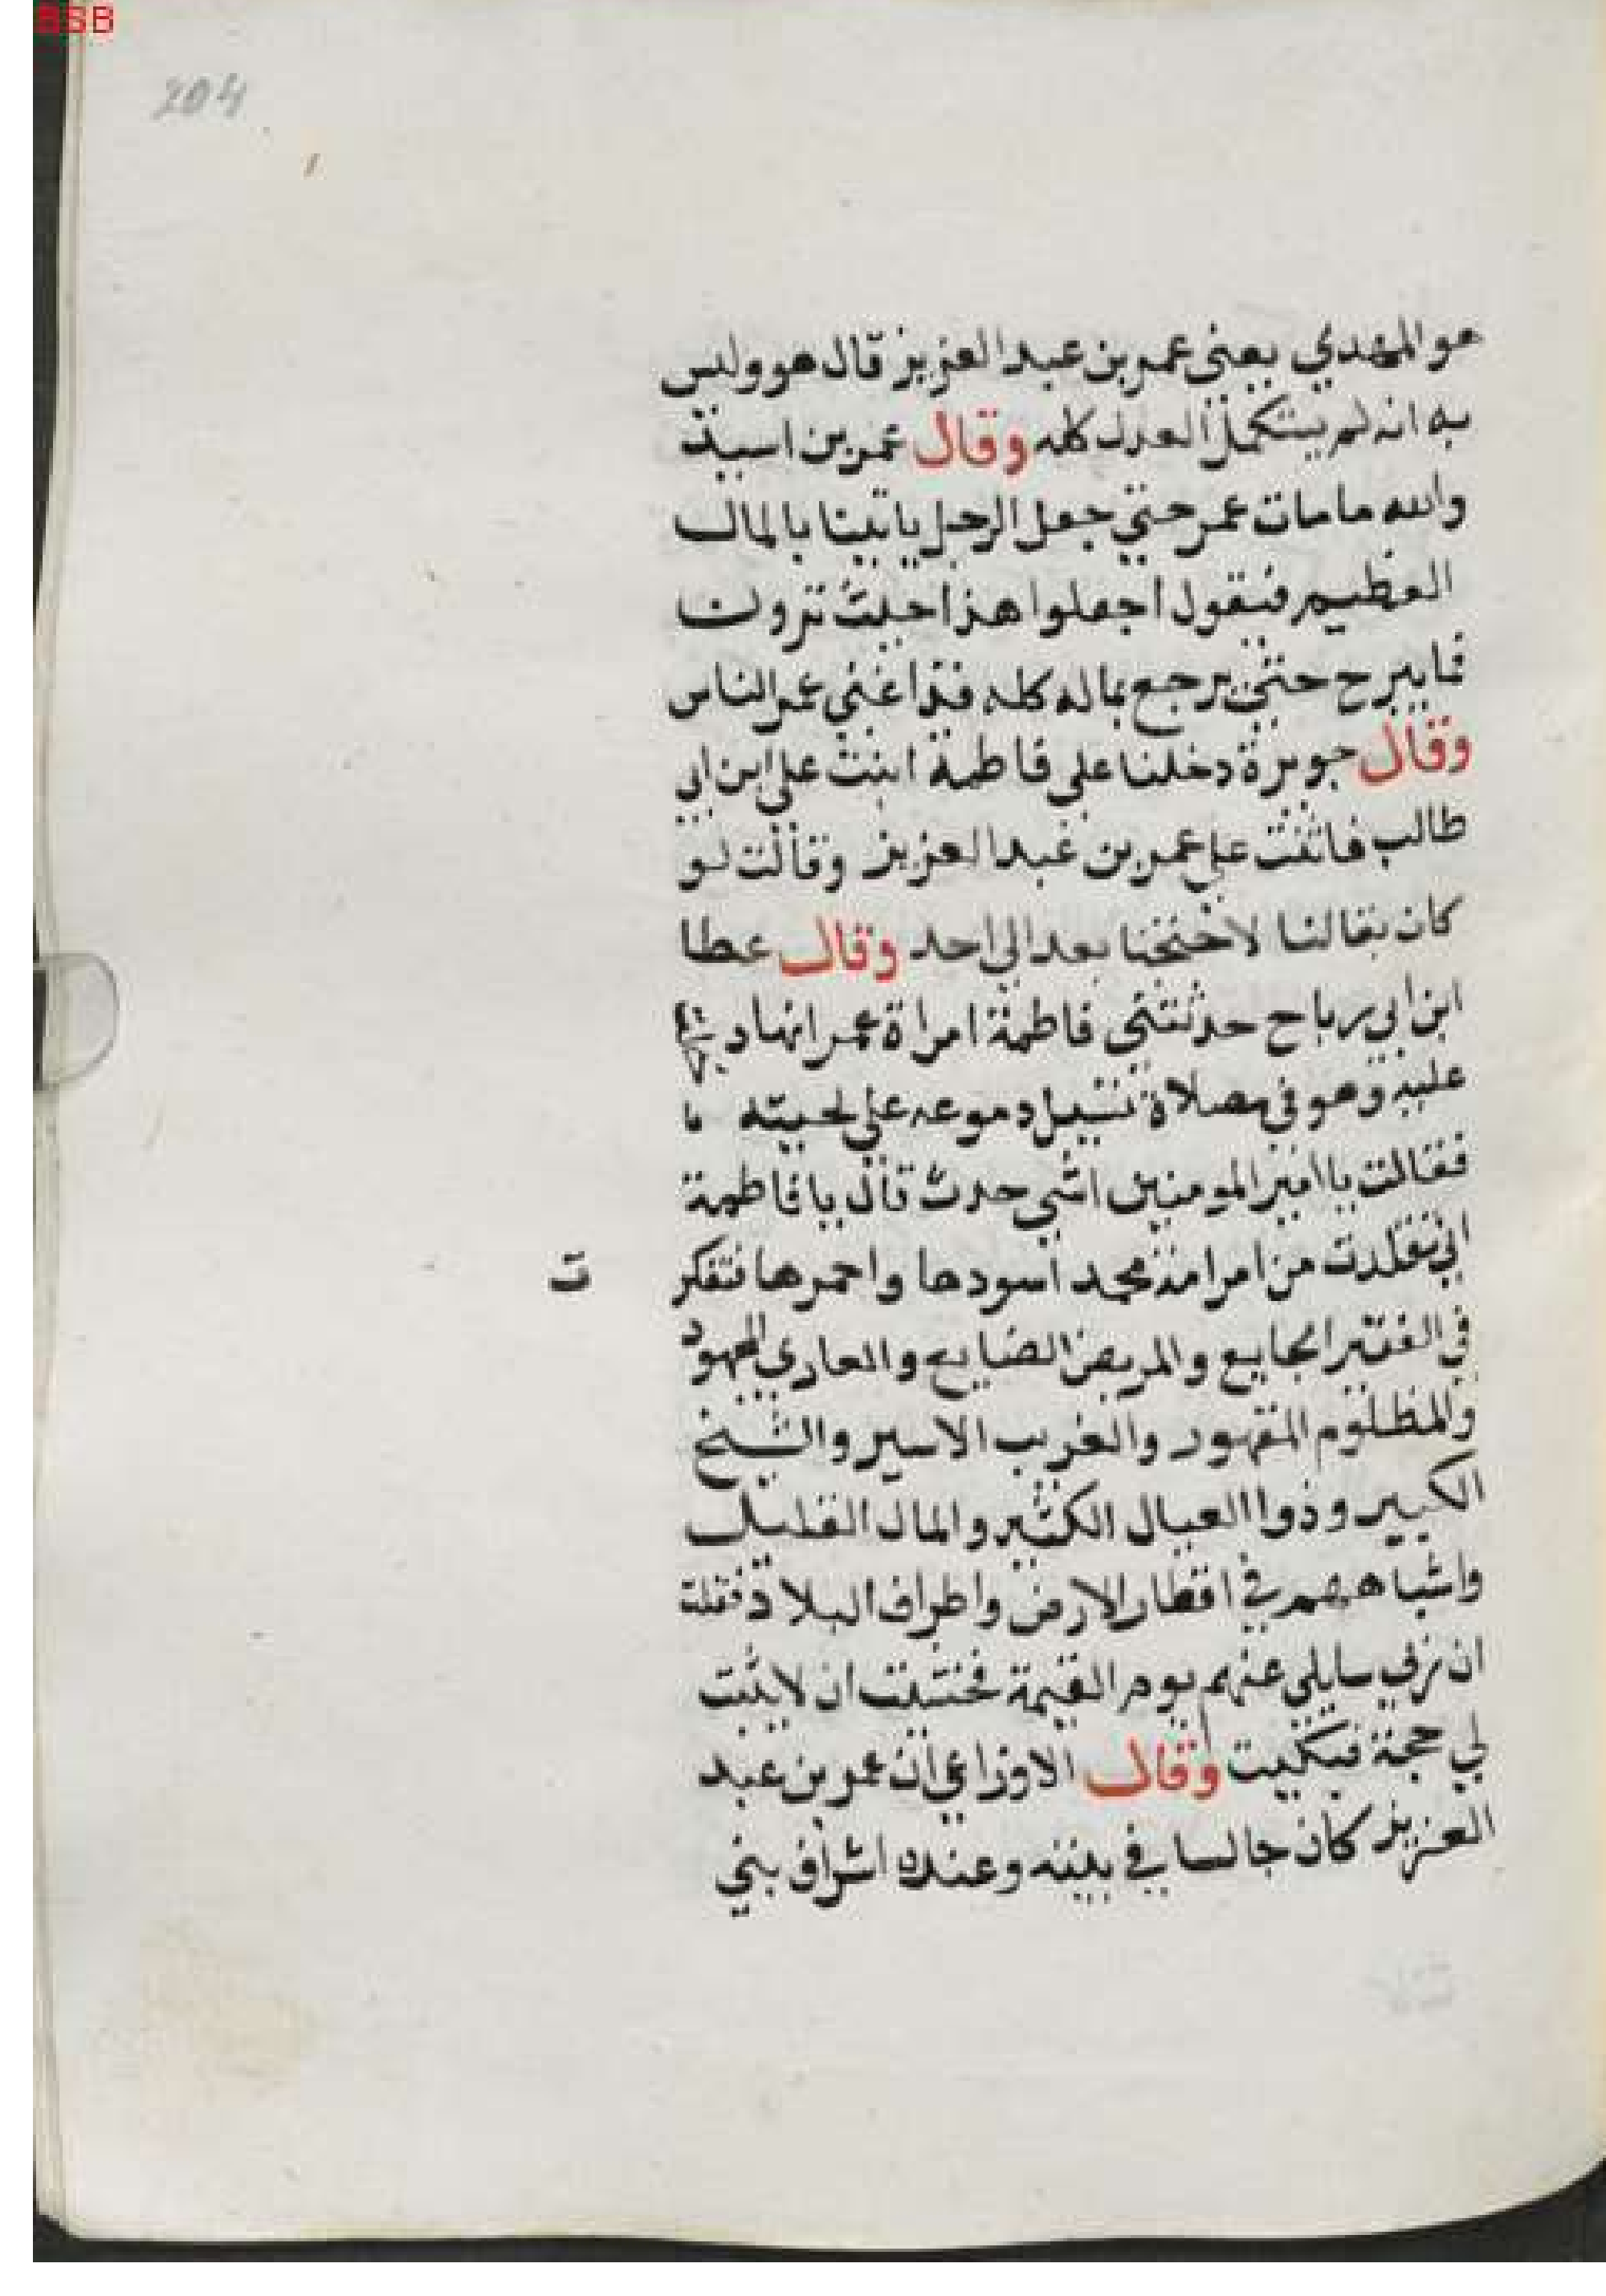 BSB
204
هو المهدي يعني عمر بن عبد العزيز قال هو وليس
به انه لم يستكمل العدل كله وقال عمر بن اسيد
والله ما مات عمر حتي جعل الرجل ياتينا بالمال
العظيم فيقول اجعلوا هذا حيث ترون
فما يبرح حتي يرجع بماله كله قد اغني عمر الناس
وقال جويرة دخلنا علي فاطمة ابنت علي ابن ابي
طالب فاثنت علي عمر بن عبد العزيز وقالت لو
كان بقا لنا لاحتجنا بعد الي احد وقال عطا
ابن ابي رباح حدثتني فاطمة امراة عمر انها
عليه وهو في مصلاة تسيل دموعه علي لحيته
فقالت يا امير المومنين اشي حدث قال يا فاطمة
اني تقلدت من امر امة محمد اسودها واحمرها فتفكر
ت
في الفقير الجايع والمريض الضايع والعاري المجهود
والمظلوم المقهور والغريب الاسير والشيخ
الكبير وذوا العيال الكثير والمال القليل
واشباههم في اقطار الارض واطراف البلاد
ان ربي سايلي عنهم يوم القيمة فخشيت ان لا يثبت
لي حجة فبكيت وقال الاوزاعي ان عمر بن عبد
العزيز كان جالسا في بيته وعنده اشراف بني